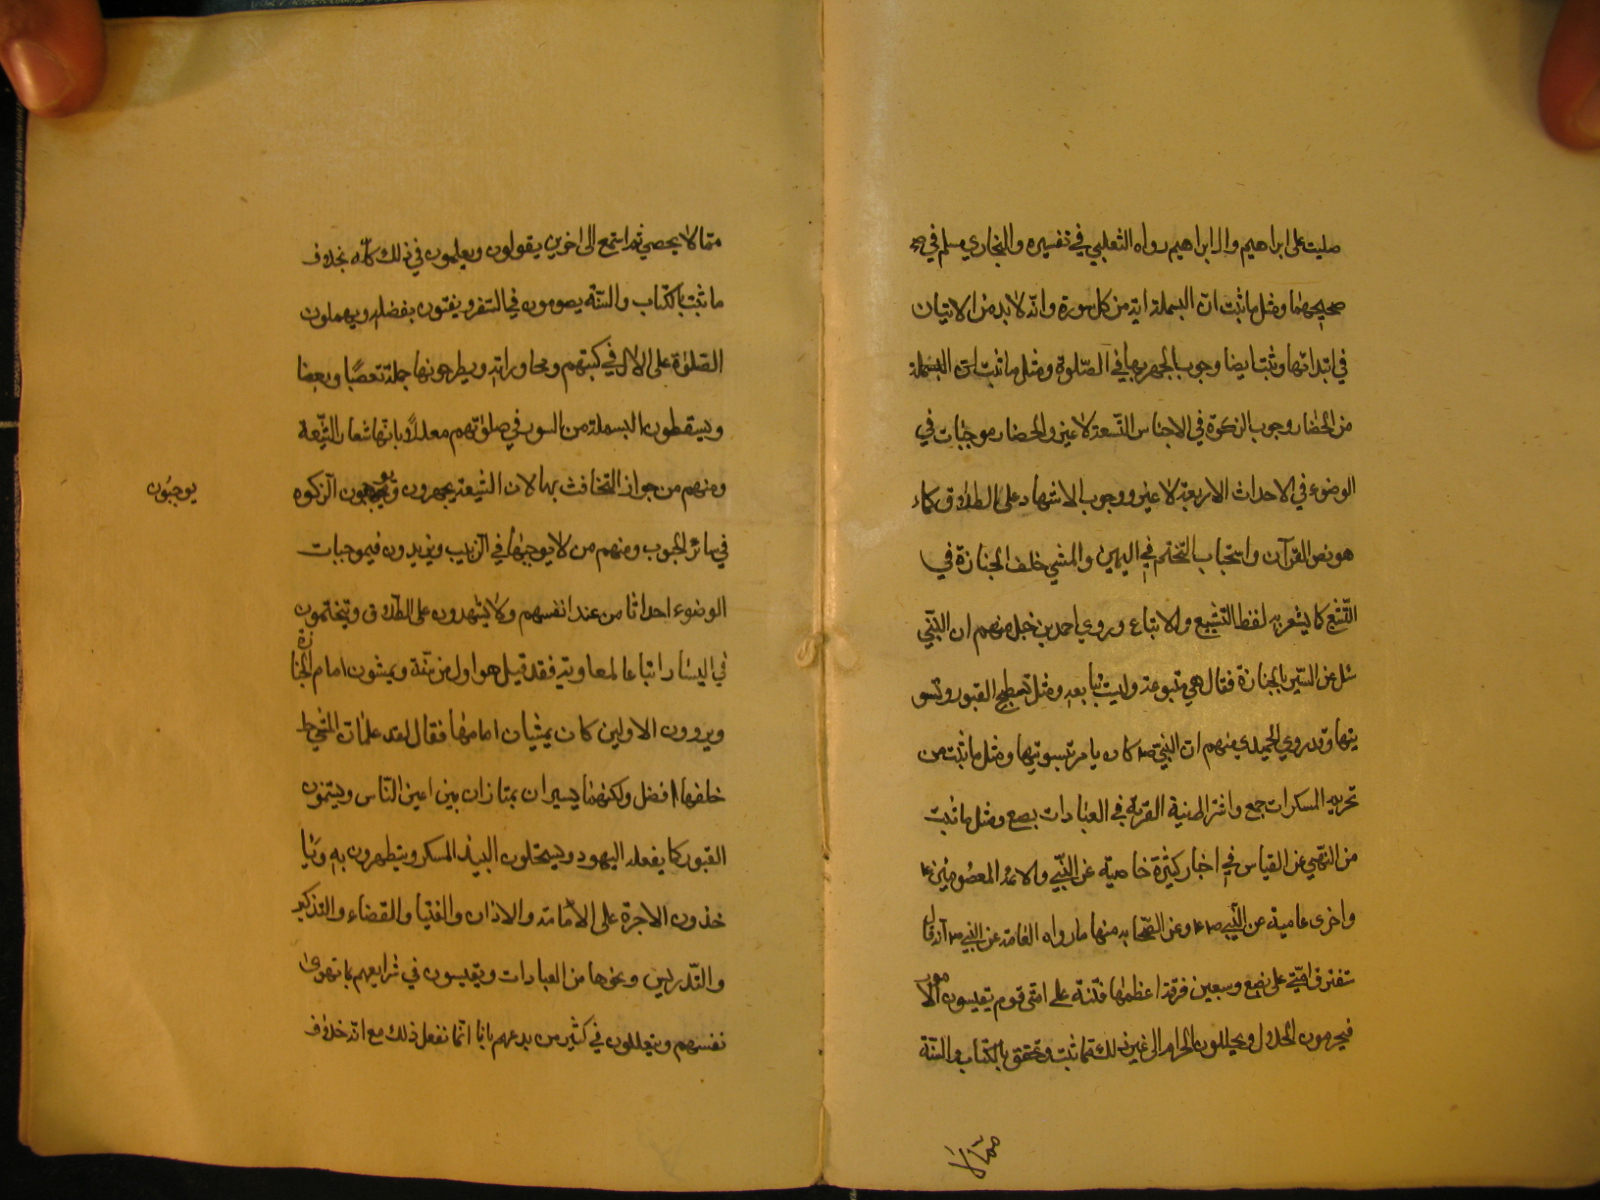 صليت على ابراهيم وال ابراهيم رواه الثعلبي في تفسيره والبخاري مسلم في
صحيحهما ومثل ما ثبت ان البسملة اية من كل سورة وانه لا بد من الاتيان
في ابتدائها وثبت ايضا وجوب الجهر بها في الصلوة ومثل ما ثبت البسملة
من انحصار وجوب الزكوة في الاجناس التسعة لا غير وانحصار موجبات في
الوضوء في الاحداث الاربعة لا غير ووجوب الاشهاد على الطلاق كماء
هو نص القرآن واستحباب التختم في اليمين والمشي خلف الجنازة في
التشيع كما يشعر به لفظ التشييع والاتباع وروي احمد بن حنبل منهم ان النبي
سئل عن السير بالجنازة فقال هي متبوعة وليست بتابعه ومثل تسطيح القبور وتسو
يتها وقد روي الحميدي منهم ان النبي ص كان يامر بتسويتها ومثل ما ثبت من
تحريم المسكرات جمع وافتراط نية القربة في العبادات بصع ومثل ما ثبت
من النهي عن القياس في اخبار كثيرة خاصية عن النبي والائمة المعصومين ع
واخرى عامية عن النبي ص وعن الصحابه منها ما رواه العامة عن النبي ص انه قال
تفترق امتي على بضع وسبعين فرقة اعظمها فتنة على امتى قوم يقيسون الامور
فيحرمون الحلال ويحللون الحرام الى غير ذلك مما ثبت وتحقق بالكتاب والسنة
مما لا
مما لا يحصى ثم استمع الى اخرين يقولون ويعلمون في ذلك كله بخلاف
ما ثبت بالكتاب والسنة يصومون في السفر ويفتون بفضله ويهملون
الصلوة على الال في كتبهم ومحاوراته ويطرحونها جملة تعصبا وبعضا
ويسقطون البسملة من السور في صلوتهم معللا بانها شعار الشيعة
ومنهم من جواز التخافت بها لان الشيعة يجهرون ويوجبون الزكوه
يوجبون
في سائر الحبوب ومنهم من لا يوجبها في الزبيب ويزيدون فيموجبات
الوضوء احداثا من عند انفسهم ولا يشهدون على الطلاق ويتختمون
في اليسار اتباعا لمعاوية فقد قيل هو اول من سنه ويمشون امام الجنازة
ويروون الاولين كان يمشيان امامها فقال لقد علمات المشي
خلفها افضل ولكنهما يسيران يمتازان بين اعين الناس ويسنمون
القبور كما يفعله اليهود ويستحلون النبيذ المسكر ويتطهرون به ويا
خذون الاجرة على الامامة والاذان والفتيا والقضاء والتذكير
والتدريس ونحوها من العبادات ويقيسون في شرايعهم بما تهوى
نفسهم ويتعللون في كثير من بدعهم بانا انما نفعل ذلك مع انه خلاف